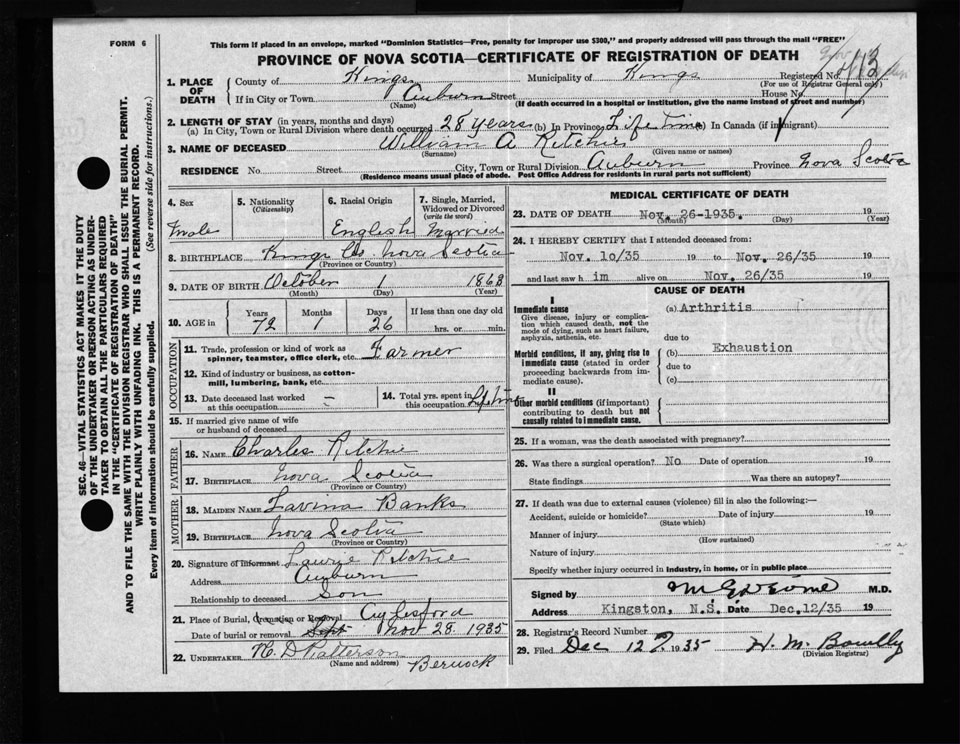 FORM 6
This form if placed in an envelope, marked "Dominion Statistics—Free, penalty for improper use $300," and properly addressed will pass through the mail "FREE"
PROVINCE OF NOVA SCOTIA—CERTIFICATE OF REGISTRATION OF DEATH
1. PLACE OF DEATH
County of Kings Municipality of Kings Registered No.
(For use of Registrar General only)
If in City or Town Auburn Street House No.
(Name) (If death occurred in a hospital or institution, give the name instead of street and number)
2. LENGTH OF STAY (in years, months and days)
(a) In City, Town or Rural Division where death occurred 28 years (b) In Province Life Time (c) In Canada (if immigrant)
3. NAME OF DECEASED William A Ritchie
(Surname) (Given name or names)
RESIDENCE No. Street City, Town or Rural Division Auburn Province Nova Scotia
(Residence means usual place of abode. Post Office Address for residents in rural parts not sufficient)
4. Sex
Male
5. Nationality
(Citizenship)
6. Racial Origin
English
7. Single, Married, Widowed or Divorced
(write the word)
Married
8. BIRTHPLACE Kings Co Nova Scotia
(Province or Country)
9. DATE OF BIRTH October 1 1863
(Month) (Day) (Year)
10. AGE in
Years Months Days If less than one day
72 1 26 hrs. or min.
OCCUPATION
11. Trade, profession or kind of work as spinner, teamster, office clerk, etc. Farmer
12. Kind of industry or business, as cotton-mill, lumbering, bank, etc.
13. Date deceased last worked at this occupation
14. Total yrs. spent in this occupation Life time
15. If married give name of wife or husband of deceased
FATHER
16. NAME Charles Ritchie
17. BIRTHPLACE Nova Scotia
(Province or Country)
MOTHER
18. MAIDEN NAME Lavina Banks
19. BIRTHPLACE Nova Scotia
(Province or Country)
20. Signature of informant Ritchie
Address Auburn
Relationship to deceased Son
21. Place of Burial, Cremation or Removal Aylesford
Date of burial or removal Sept Nov 28. 1935
22. UNDERTAKER H. D Patterson
(Name and address) Berwick
MEDICAL CERTIFICATE OF DEATH
23. DATE OF DEATH Nov. 26-1935. 19
(Month) (Day) (Year)
24. I HEREBY CERTIFY that I attended deceased from:
Nov. 10/35 19 to Nov. 26/35 19
and last saw h im alive on Nov. 26/35 19
CAUSE OF DEATH
I
Immediate cause
Give disease, injury or complication which caused death, not the mode of dying, such as heart failure, asphyxia, asthenia, etc.
(a) Arthritis
due to
Morbid conditions, if any, giving rise to immediate cause (stated in order proceeding backwards from immediate cause).
(b) Exhaustion
due to
(c)
II
Other morbid conditions (if important) contributing to death but not causally related to immediate cause.
25. If a woman, was the death associated with pregnancy?
26. Was there a surgical operation? No Date of operation 19
State findings Was there an autopsy?
27. If death was due to external causes (violence) fill in also the following:—
Accident, suicide or homicide? Date of injury 19
(State which)
Manner of injury
(How sustained)
Nature of injury
Specify whether injury occurred in industry, in home, or in public place
Signed by M.D.
Address Kingston, N.S. Date Dec.12/35 19
28. Registrar's Record Number
29. Filed Dec 12 1935 H. M. Bowlby
(Division Registrar)
SEC. 46—VITAL STATISTICS ACT MAKES IT THE DUTY
OF THE UNDERTAKER OR PERSON ACTING AS UNDER-
TAKER TO OBTAIN ALL THE PARTICULARS REQUIRED
IN THE "CERTIFICATE OF REGISTRATION OF DEATH"
AND TO FILE THE SAME WITH THE DIVISION REGISTRAR WHO SHALL ISSUE THE BURIAL PERMIT.
WRITE PLAINLY WITH UNFADING INK. THIS IS A PERMANENT RECORD.
Every item of information should be carefully supplied. (See reverse side for instructions.)